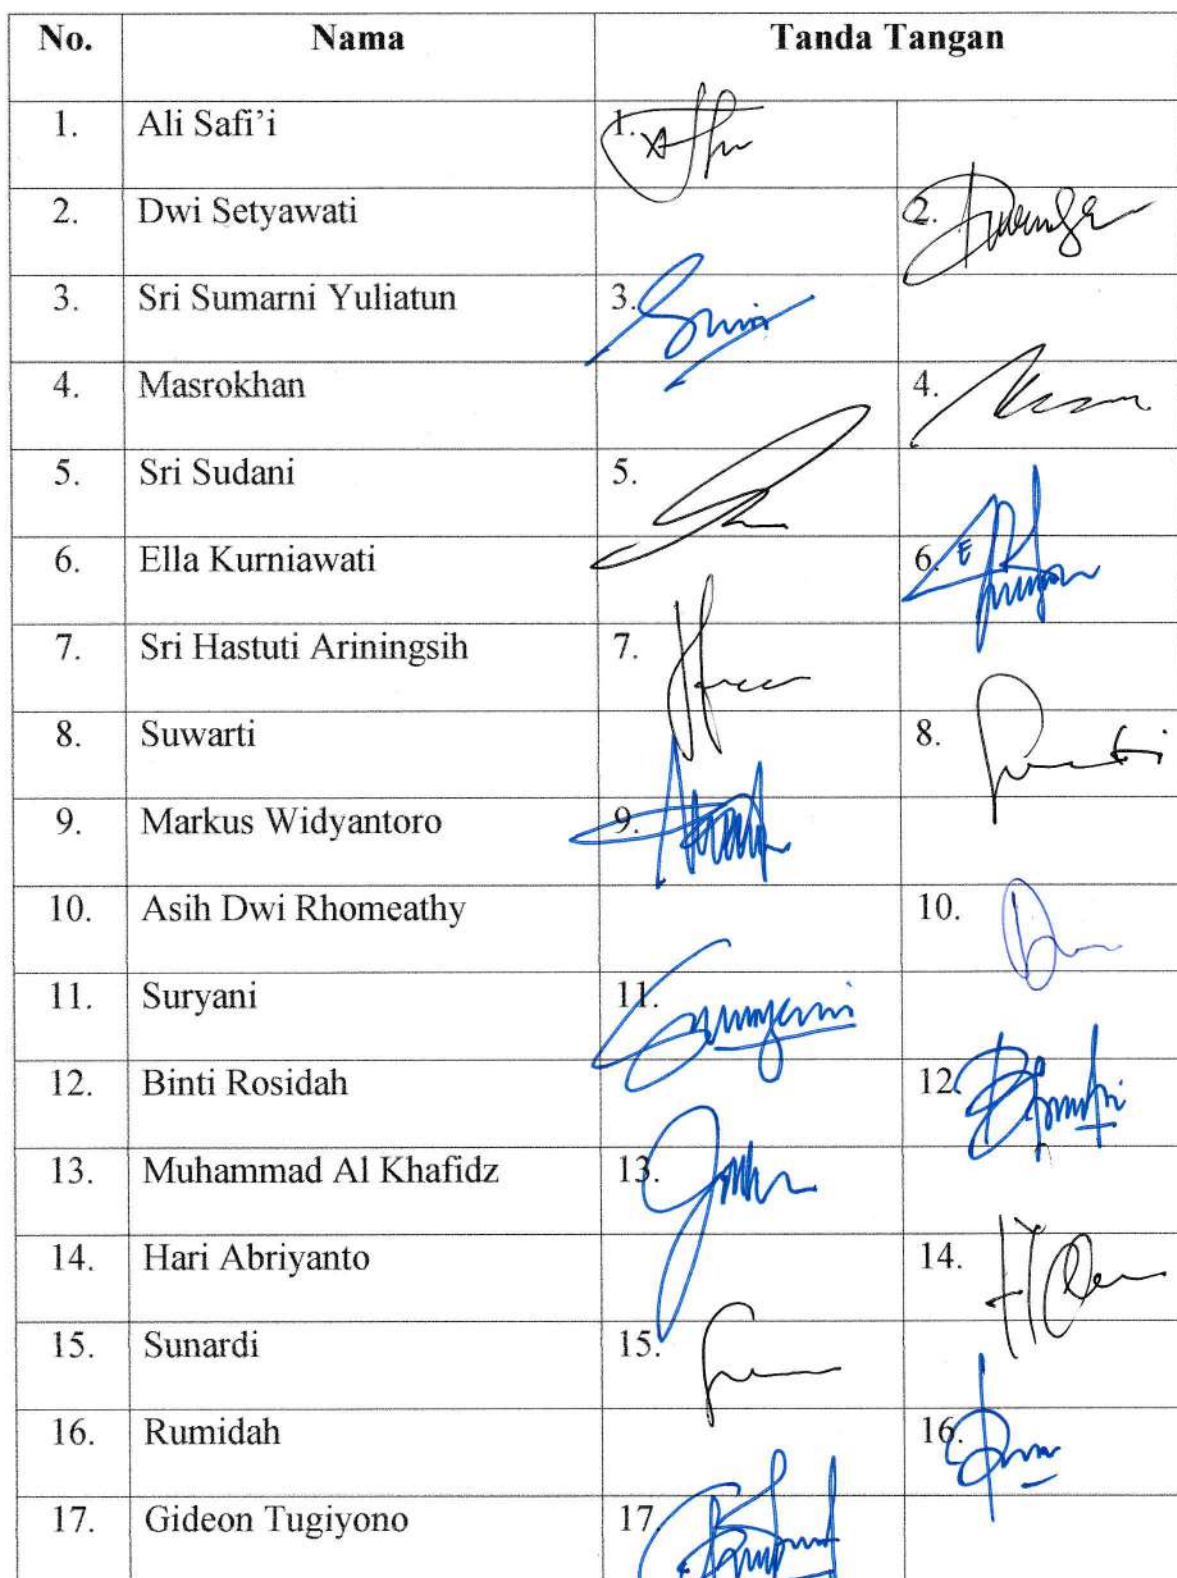 No. Nama Tanda Tangan
1. Ali Safi'i 1.
2. Dwi Setyawati 2.
3. Sri Sumarni Yuliatun 3.
4. Masrokhan 4.
5. Sri Sudani 5.
6. Ella Kurniawati 6.
7. Sri Hastuti Ariningsih 7.
8. Suwarti 8.
9. Markus Widyantoro 9.
10. Asih Dwi Rhomeathy 10.
11. Suryani 11.
12. Binti Rosidah 12.
13. Muhammad Al Khafidz 13.
14. Hari Abriyanto 14.
15. Sunardi 15.
16. Rumidah 16.
17. Gideon Tugiyono 17.